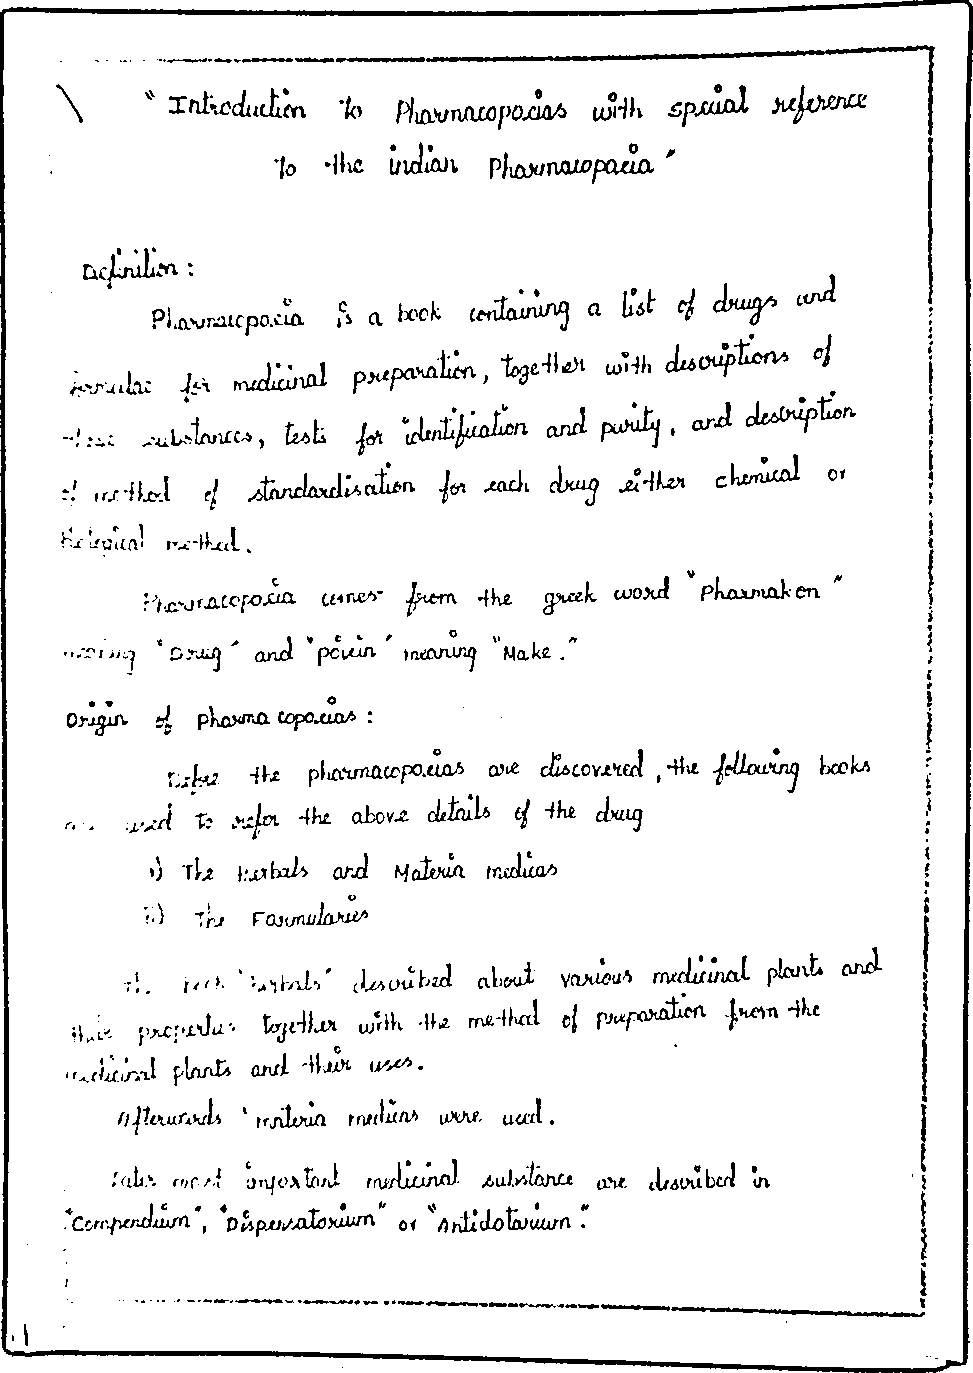 "Introduction to Pharmacopoeias with special reference
to the indian Pharmacopoeia"
Definition :
Pharmacopoeia is a book containing a list of drugs and
formulae for medicinal preparation, together with descriptions of
these substances, tests for identification and purity, and description
of method of standardisation for each drug either chemical or
Biological method.
Pharmacopoeia comes from the greek word "Pharmakon"
meaning "Drug" and "poiein" meaning "Make."
Origin of pharmacopoeias :
Before the pharmacopoeias are discovered, the following books
are used to refer the above details of the drug
i) The Herbals and Materia medicas
ii) The Formularies
The book "herbals" described about various medicinal plants and
their properties together with the method of preparation from the
medicinal plants and their uses.
Afterwards 'materia medicas were used.
Later most important medicinal substance are described in
"Compendium", "Dispensatorium" or "Antidotarium".